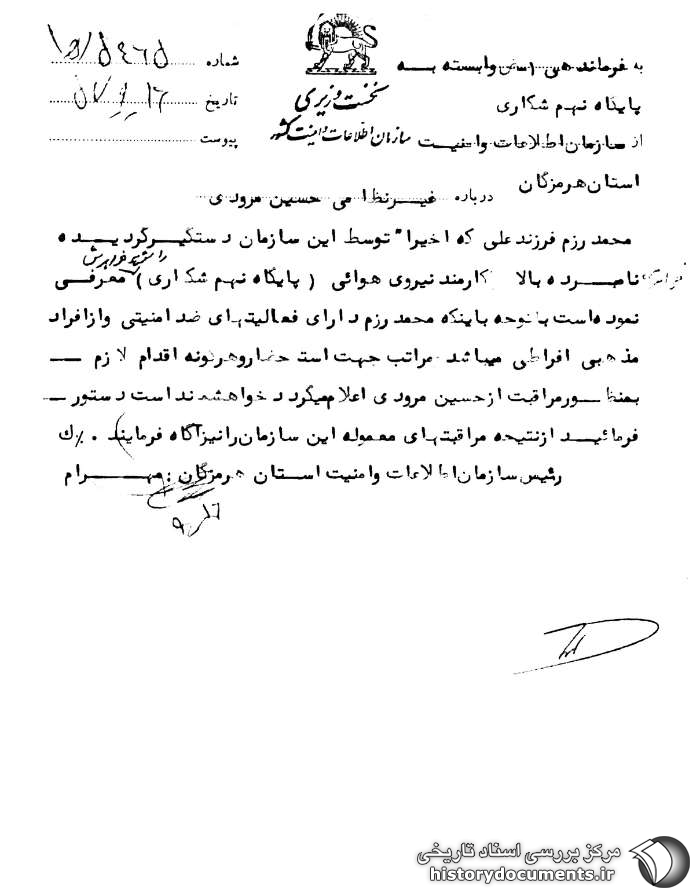 شماره ۱۵ه/۵۴۶۵
تاریخ
پیوست
نخست وزیری
سازمان اطلاعات و امنیت کشور
به فرماندهی وابسته به
پایگاه نهم شکاری
از سازمان اطلاعات وامنیت
استان هرمزگان
درباره غیرنظامی حسین مرودی
محمد رزم فرزند علی که اخیرا" توسط این سازمان دستگیرگردیده
نامبرده بالا کارمند نیروی هوائی ( پایگاه نهم شکاری ) معرفی
نموده است باتوجه باینکه محمد رزم دارای فعالیتهای ضد امنیتی وازافراد
مذهبی افراطی میباشد مراتب جهت استحضاروهرگونه اقدام لازم
بمنظورمراقبت ازحسین مرودی اعلام میگردد خواهشمند است دستور
فرمائید ازنتیجه مراقبتهای معموله این سازمان رانیزآگاه فرمایند . ک%
رئیس سازمان اطلاعات وامنیت استان هرمزگان : مهرام
۹/۱۶
مرکز بررسی اسناد تاریخی
historydocuments.ir